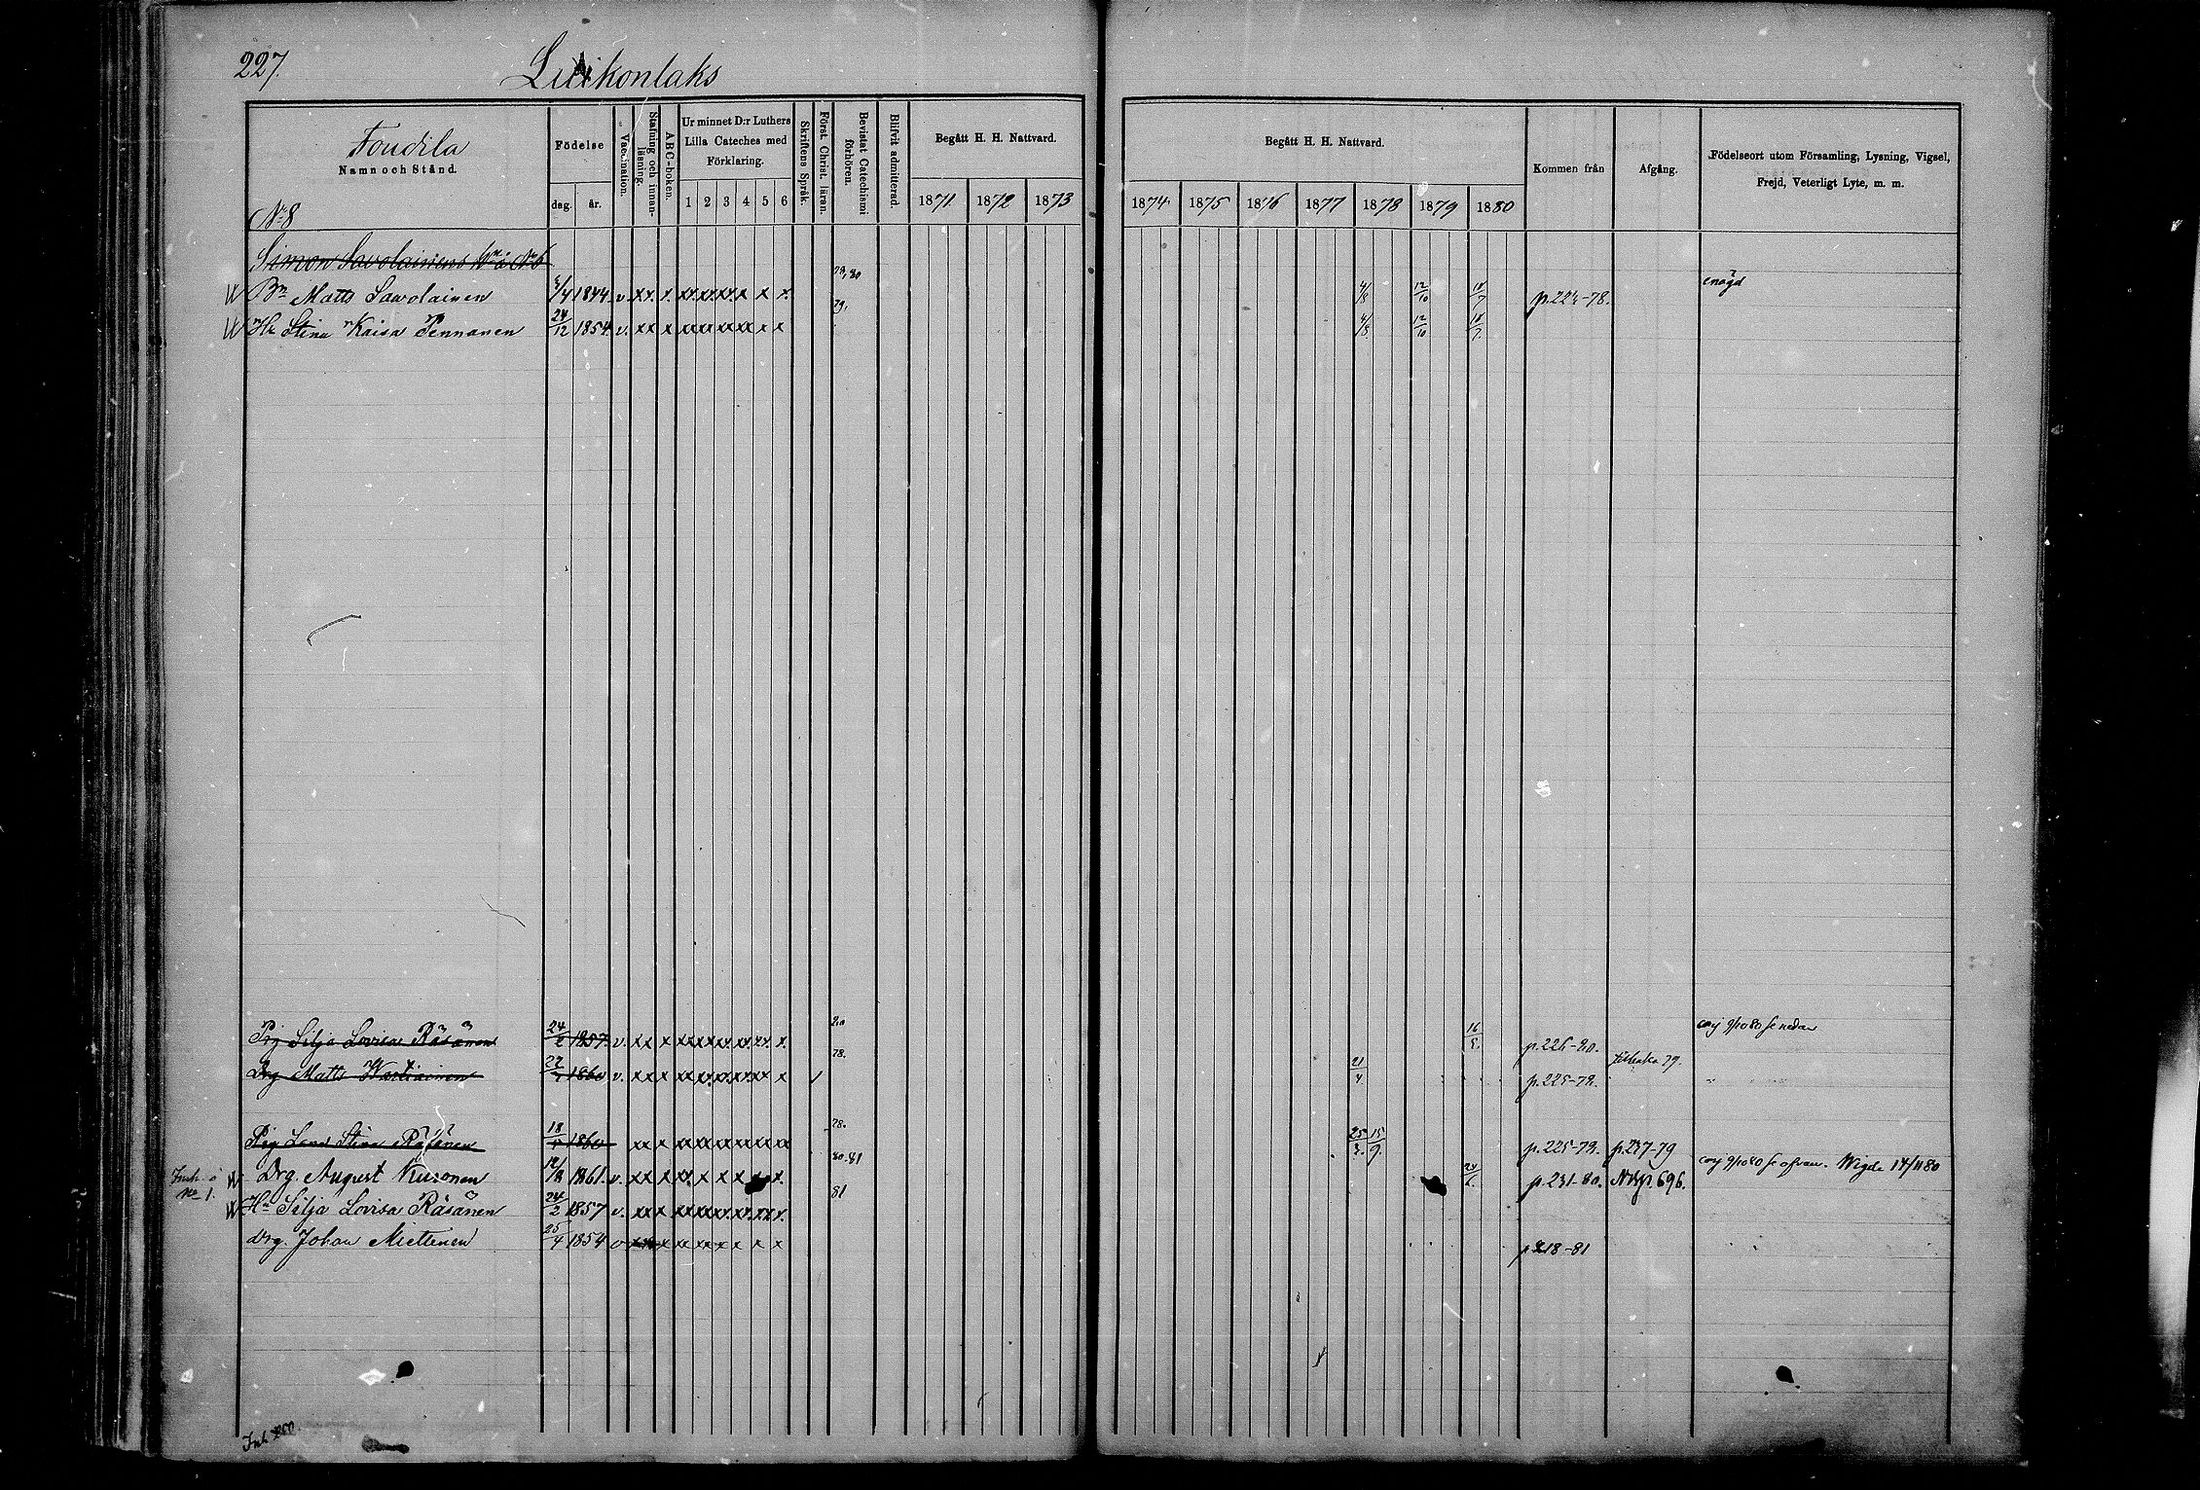 227.
Luikonlaks
Toudila
Namn och Stånd.
No 8
Födelse
dag. år.
Vaccination.
Stafning och innanläsning.
ABC-boken.
Ur minnet D:r Luthers Lilla Cateches med Förklaring.
1 2 3 4 5 6
Skriftens Språk.
Först. Christ. läran.
Bevistat Catechismi förhören.
Blifvit admitterad.
Begått H. H. Nattvard.
1871 1872 1873
Begått H. H. Nattvard.
1874 1875 1876 1877 1878 1879 1880
Kommen från
Afgång.
Födelseort utom Församling, Lysning, Vigsel, Frejd, Veterligt Lyte, m. m.
Simon Savolainens
Bn Matts Savolainen 1844 v. xx x. xx xx xx x x x. 4/8 12/10 p. 224-78. enögd
Hu Stina Kaisa Pennanen 24/12 1854 v. xx x xx xx xx xx x x 79. 4/8 12/10
Pig Silja Lovisa Räsänen 24/2 1857 v. xx x xx xx xx xx xx x. p. 226-80. conj 9/10 80 se nedan
Drg Matts 1860 v. xx x xx xx xx xx xx x 78. 21/4 p. 225-78. 79.
Pig Lena Stina Räsänen 1860 xx x xx xx xx xx xx xx 78. 15/9 p. 225-78. p. 237-79
Drg. August Kuronen 1861. v. xx x xx x x x x x. 80-81 p. 231-80. 696. conj 9/10 80 se ofvan. Wigde 14/11 80
No 1.
Hu Silja Lovisa Räsänen 24/2 1857 v. xx x xx xx xx xx xx x. 81
drg. Johan Miettenen 25/4 1854 v xx x xx x x x x x p 218-81
Inh.